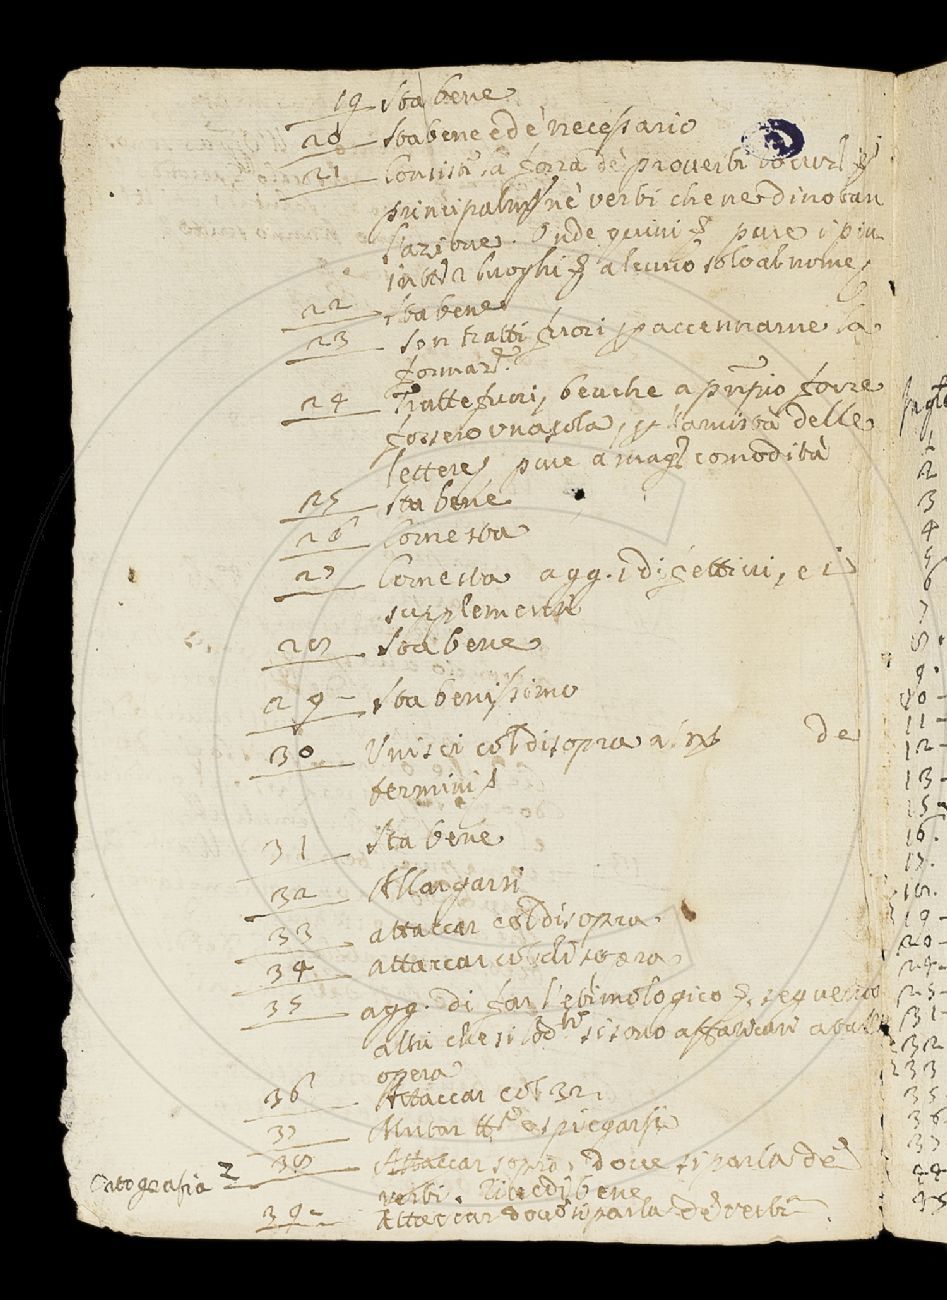 19 sta bene
20 sta bene ed è necessario
21 Consist la forza de proverbi
principalm ne verbi che ne dinotan
l'azione. Onde quivi pure i più
luoghi alcuno solo al nome
22 sta bene
23 son tratti fuori p accennarne la
formaz.e
24 Tratte fuori, benche a pnpio forse
fossero una sola, p l'amistà delle
lettere, pure a mag. comodità
25 sta bene
26 Come sta
27 Come sta agg. i difettivi, e i
supplementi
28 sta bene
29 - sta benissimo
30 Unisci col disopra de
termini
31 sta bene
32 Allargarsi
33 attaccar col disopra.
34 attaccar col disopra
35 agg. di far l'etimologico
altri che si sono affaticati a
opera
36 Attaccar col 32.
37 Mutar tt.o e spiegarsi
Ortografia 2
38 Attaccar sopra, dove si parla de
verbi. Rivedi bene
39 - Attaccar dove si parla de verbi
1
2
3
4
5
6
7
8.
9.
10 -
11 -
12 -
13 -
15 -
16.
17.
18.
19 -
20 -
24 -
25 -
31 -
32
33
35
36
37
44
45